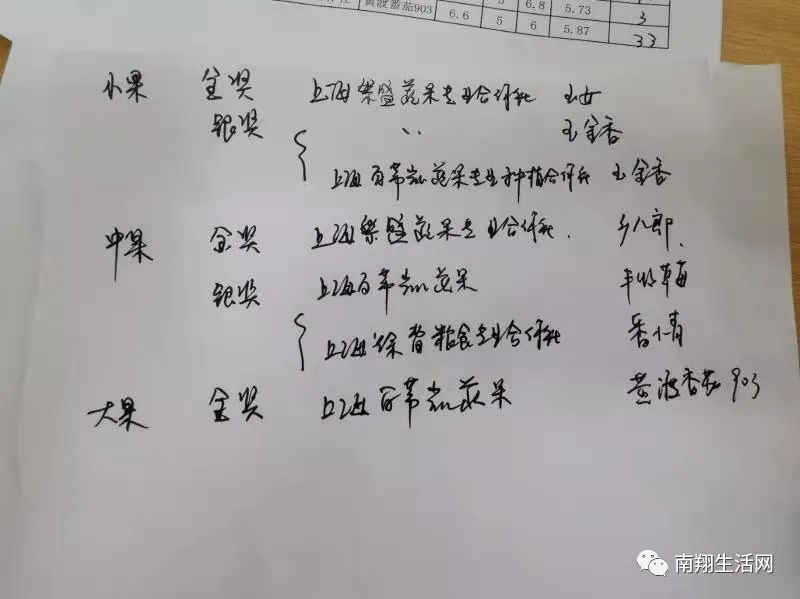 黄波番茄903 6.8 5.73 3
6.6 5 6 5.87 33
小果 金奖 上海燊盛蔬果专业合作社 玉女
银奖 〃 玉金香
上海百蒂凯蔬果专业种植合作社 玉金香
中果 金奖 上海燊盛蔬果专业合作社. 乡八郎.
银奖 上海百蒂凯蔬果 丰收草莓
上海徐晋粮食专业合作社 香小倩
大果 金奖 上海百蒂凯蔬果 黄波番茄903
南翔生活网